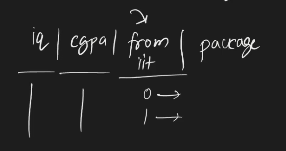 iq | cgpa | from iit | package
0 →
1 →